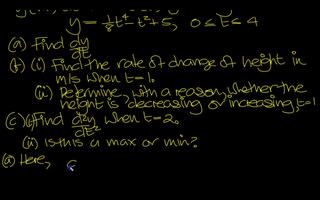 y = 1/8 t⁴ - t² + 5, 0 ≤ t ≤ 4
(a) Find dy/dt
(b) (i) Find the rate of change of height in
m/s when t = 1.
(ii) Determine, with a reason, whether the
height is decreasing or increasing, t=1
(c)(i) Find d²y/dt² when t = 2.
(ii) Is this a max or min?
(a) Here,